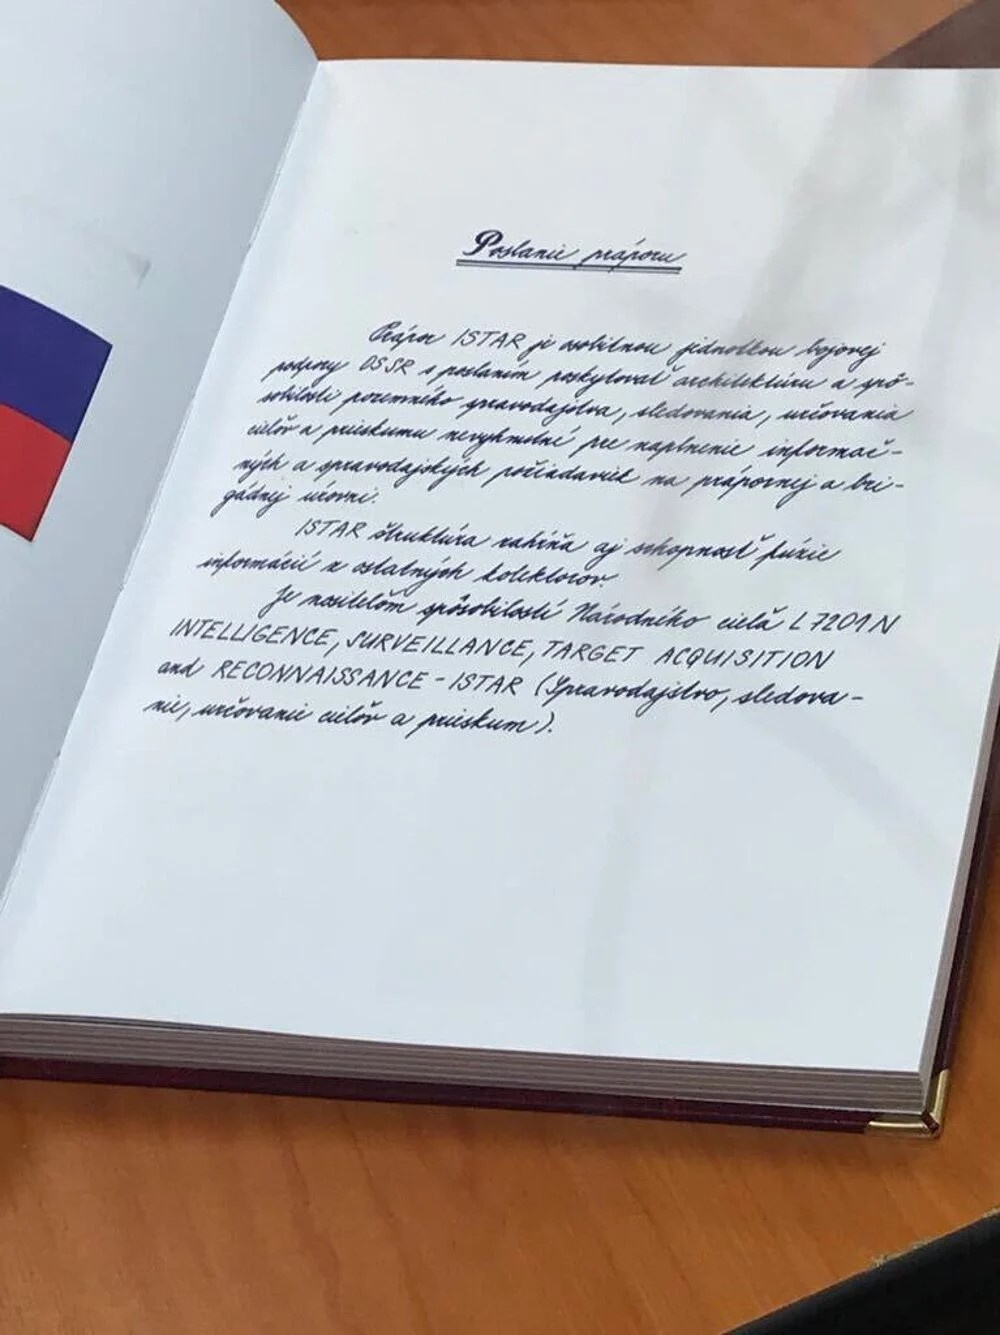 Poslanie práporu
Prápor ISTAR je osobitnou jednotkou bojovej
podpory OSSR s poslaním poskytovať architektúru a spô-
sobilosti pozemného spravodajstva, sledovania, určovania
cieľov a prieskumu nevyhnutné pre naplnenie informač-
ných a spravodajských požiadaviek na prápornej a bri-
gádnej úrovni.
ISTAR štruktúra zahŕňa aj schopnosť fúzie
informácií z ostatných kolektorov.
Je nositeľom spôsobilostí Národného cieľa L 7201 N
INTELLIGENCE, SURVEILLANCE, TARGET ACQUISITION
and RECONNAISSANCE - ISTAR (Spravodajstvo, sledova-
nie, určovanie cieľov a prieskum).